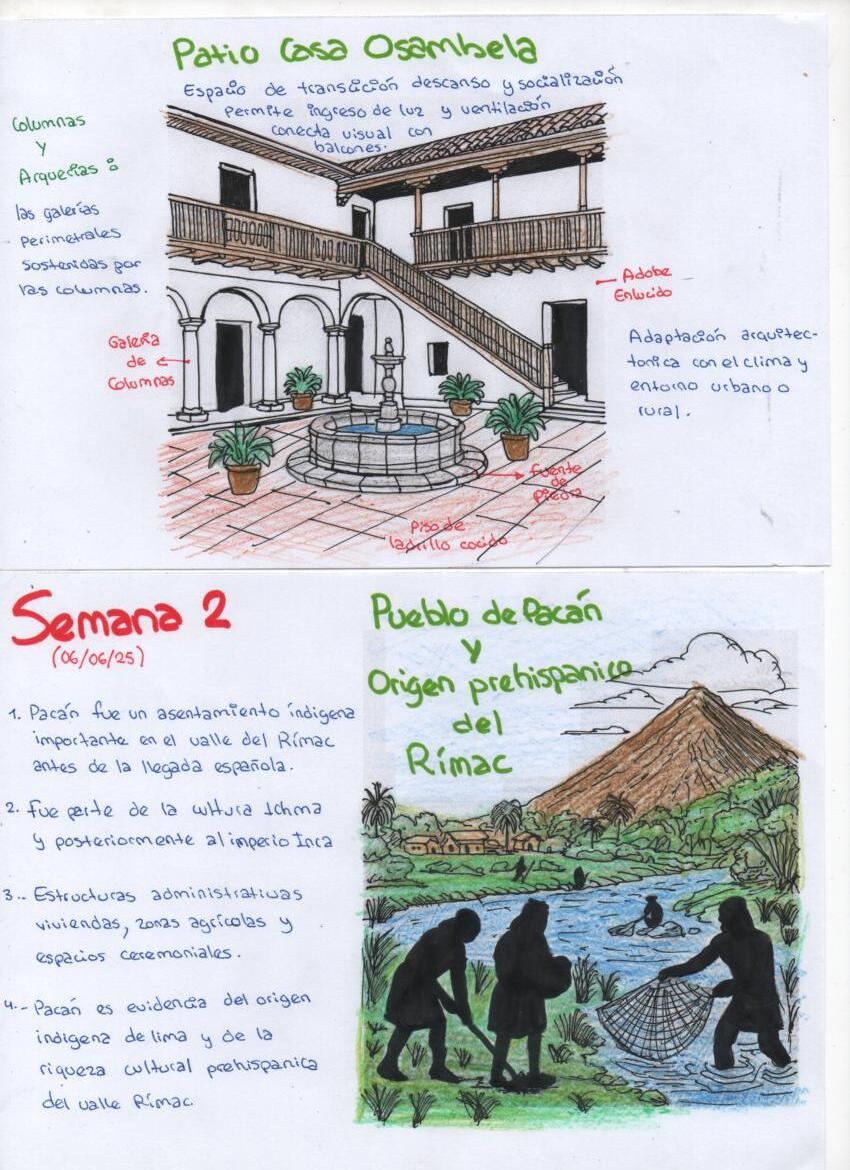 Patio Casa Osambela
Espacio de transición descanso y socialización
Permite ingreso de luz y ventilación
conecta visual con
balcones.
Columnas
y
Arquerías:
las galerías
perimetrales
sostenidas por
las columnas.
Galería
de
Columnas
Adobe
Enlucido
Adaptación arquitec-
tonica con el clima y
entorno urbano o
rural.
fuente
de
piedra
Piso de
ladrillo cocido
Semana 2
(06/06/25)
Pueblo de Pacán
y
Origen prehispanico
del
Rímac
1. Pacán fue un asentamiento indígena
importante en el valle del Rímac
antes de la llegada española.
2. fue parte de la cultura Ichma
y posteriormente al imperio Inca
3.- Estructuras administrativas
viviendas, zonas agrícolas y
espacios ceremoniales.
4.- Pacán es evidencia del origen
indigena de lima y de la
riqueza cultural prehispanica
del valle Rímac.